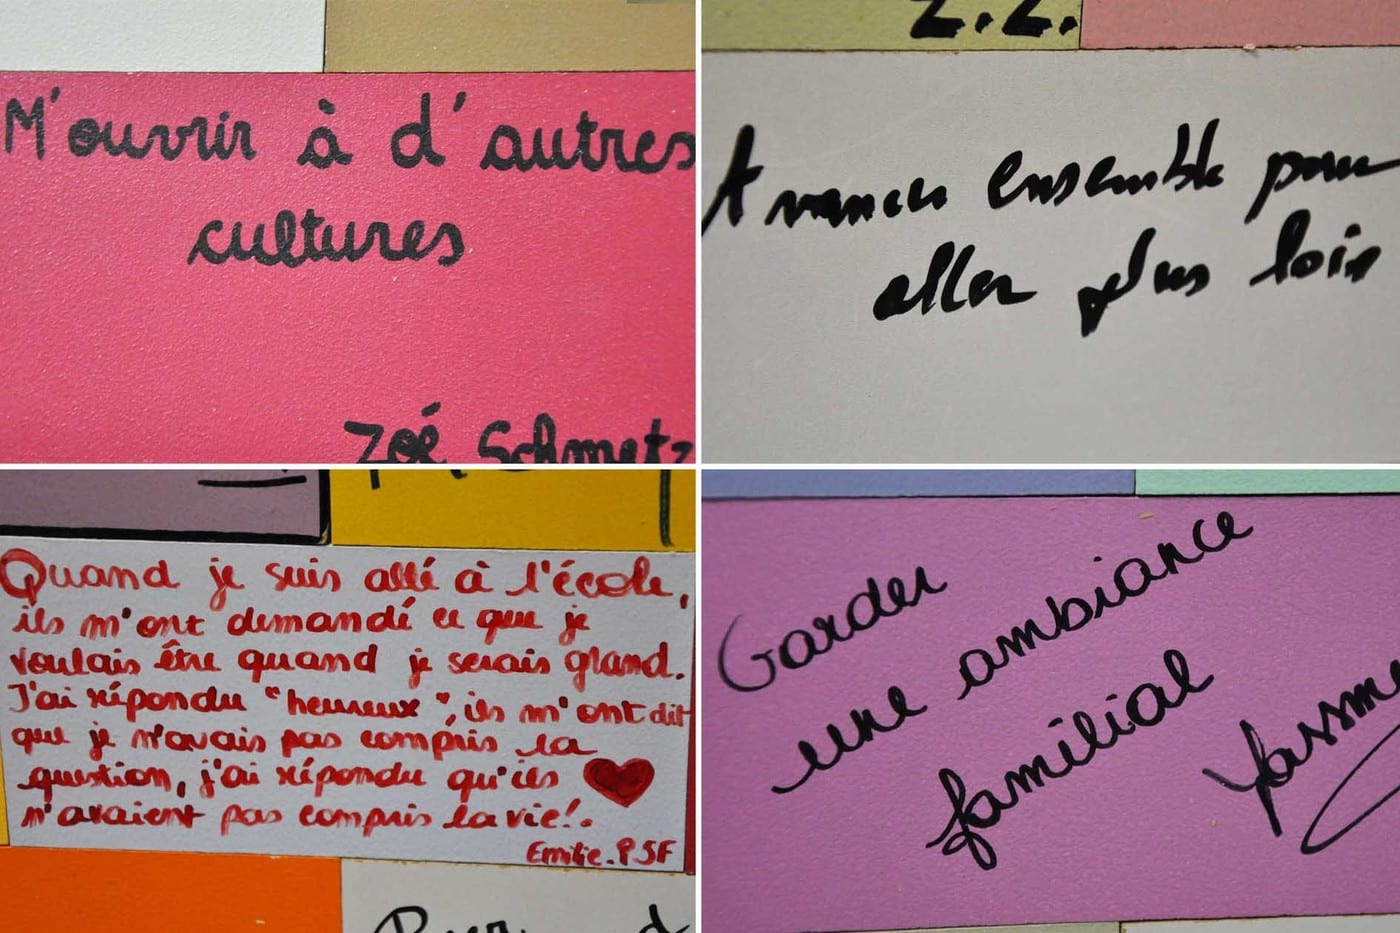 M'ouvrir à d'autres
cultures
Zoé Schmetz
Z.Z.
Avancer ensemble pour
aller plus loin
Quand je suis allé à l'école,
ils m'ont demandé ce que je
voulais être quand je serais grand.
J'ai répondu "heureux", ils m'ont dit
que je n'avais pas compris la
question, j'ai répondu qu'ils
n'avaient pas compris la vie!.
Emilie.P SF
Garder
une ambiance
familial